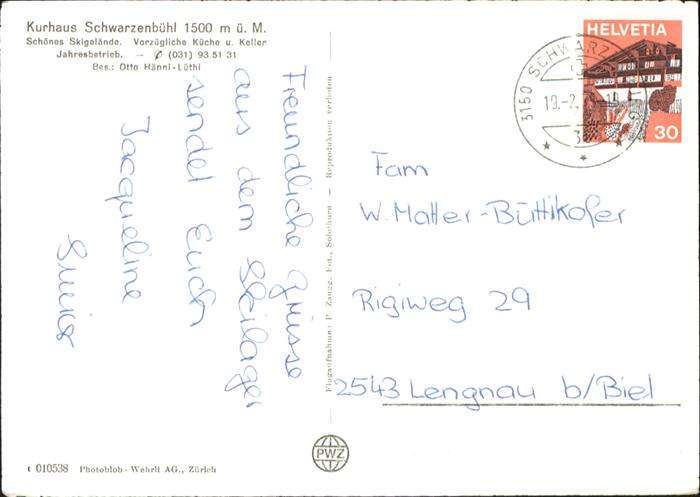 Kurhaus Schwarzenbühl 1500 m ü. M.
Schönes Skigelände. Vorzügliche Küche u. Keller
Jahresbetrieb. – ✆ (031) 93 51 31
Bes.: Otto Hänni-Lüthi
Freundliche Grüsse
aus dem Skilager
sendet Euch
Jacqueline
Flugaufnahme: P. Zaugg, Fot., Solothurn - Reproduktion verboten
HELVETIA
30
3150 SCHWARZ
19.-2.
Fam
W. Matter-Büttikofer
Rigiweg 29
2543 Lengnau b/Biel
PWZ
t 010538 Photoblob-Wehrli AG., Zürich